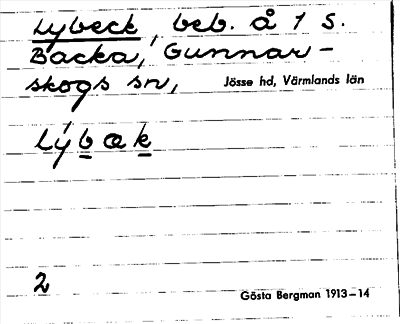 Lybeck, beb. å 1 S.
Backa, Gunnar-
skogs sn, Jösse hd, Värmlands län
lýbæk
2
Gösta Bergman 1913–14